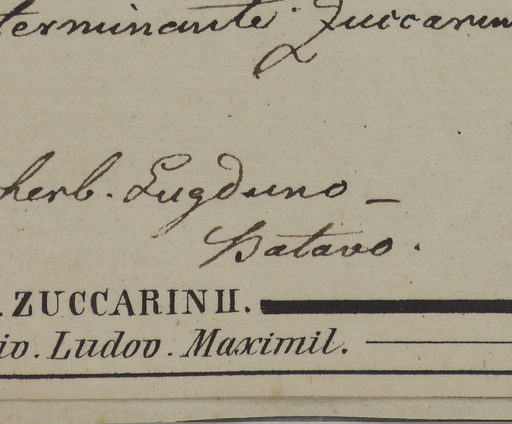 terminante Zuccarini
herb. Lugduno-
Batavo.
. ZUCCARINII.
iv. Ludov. Maximil.